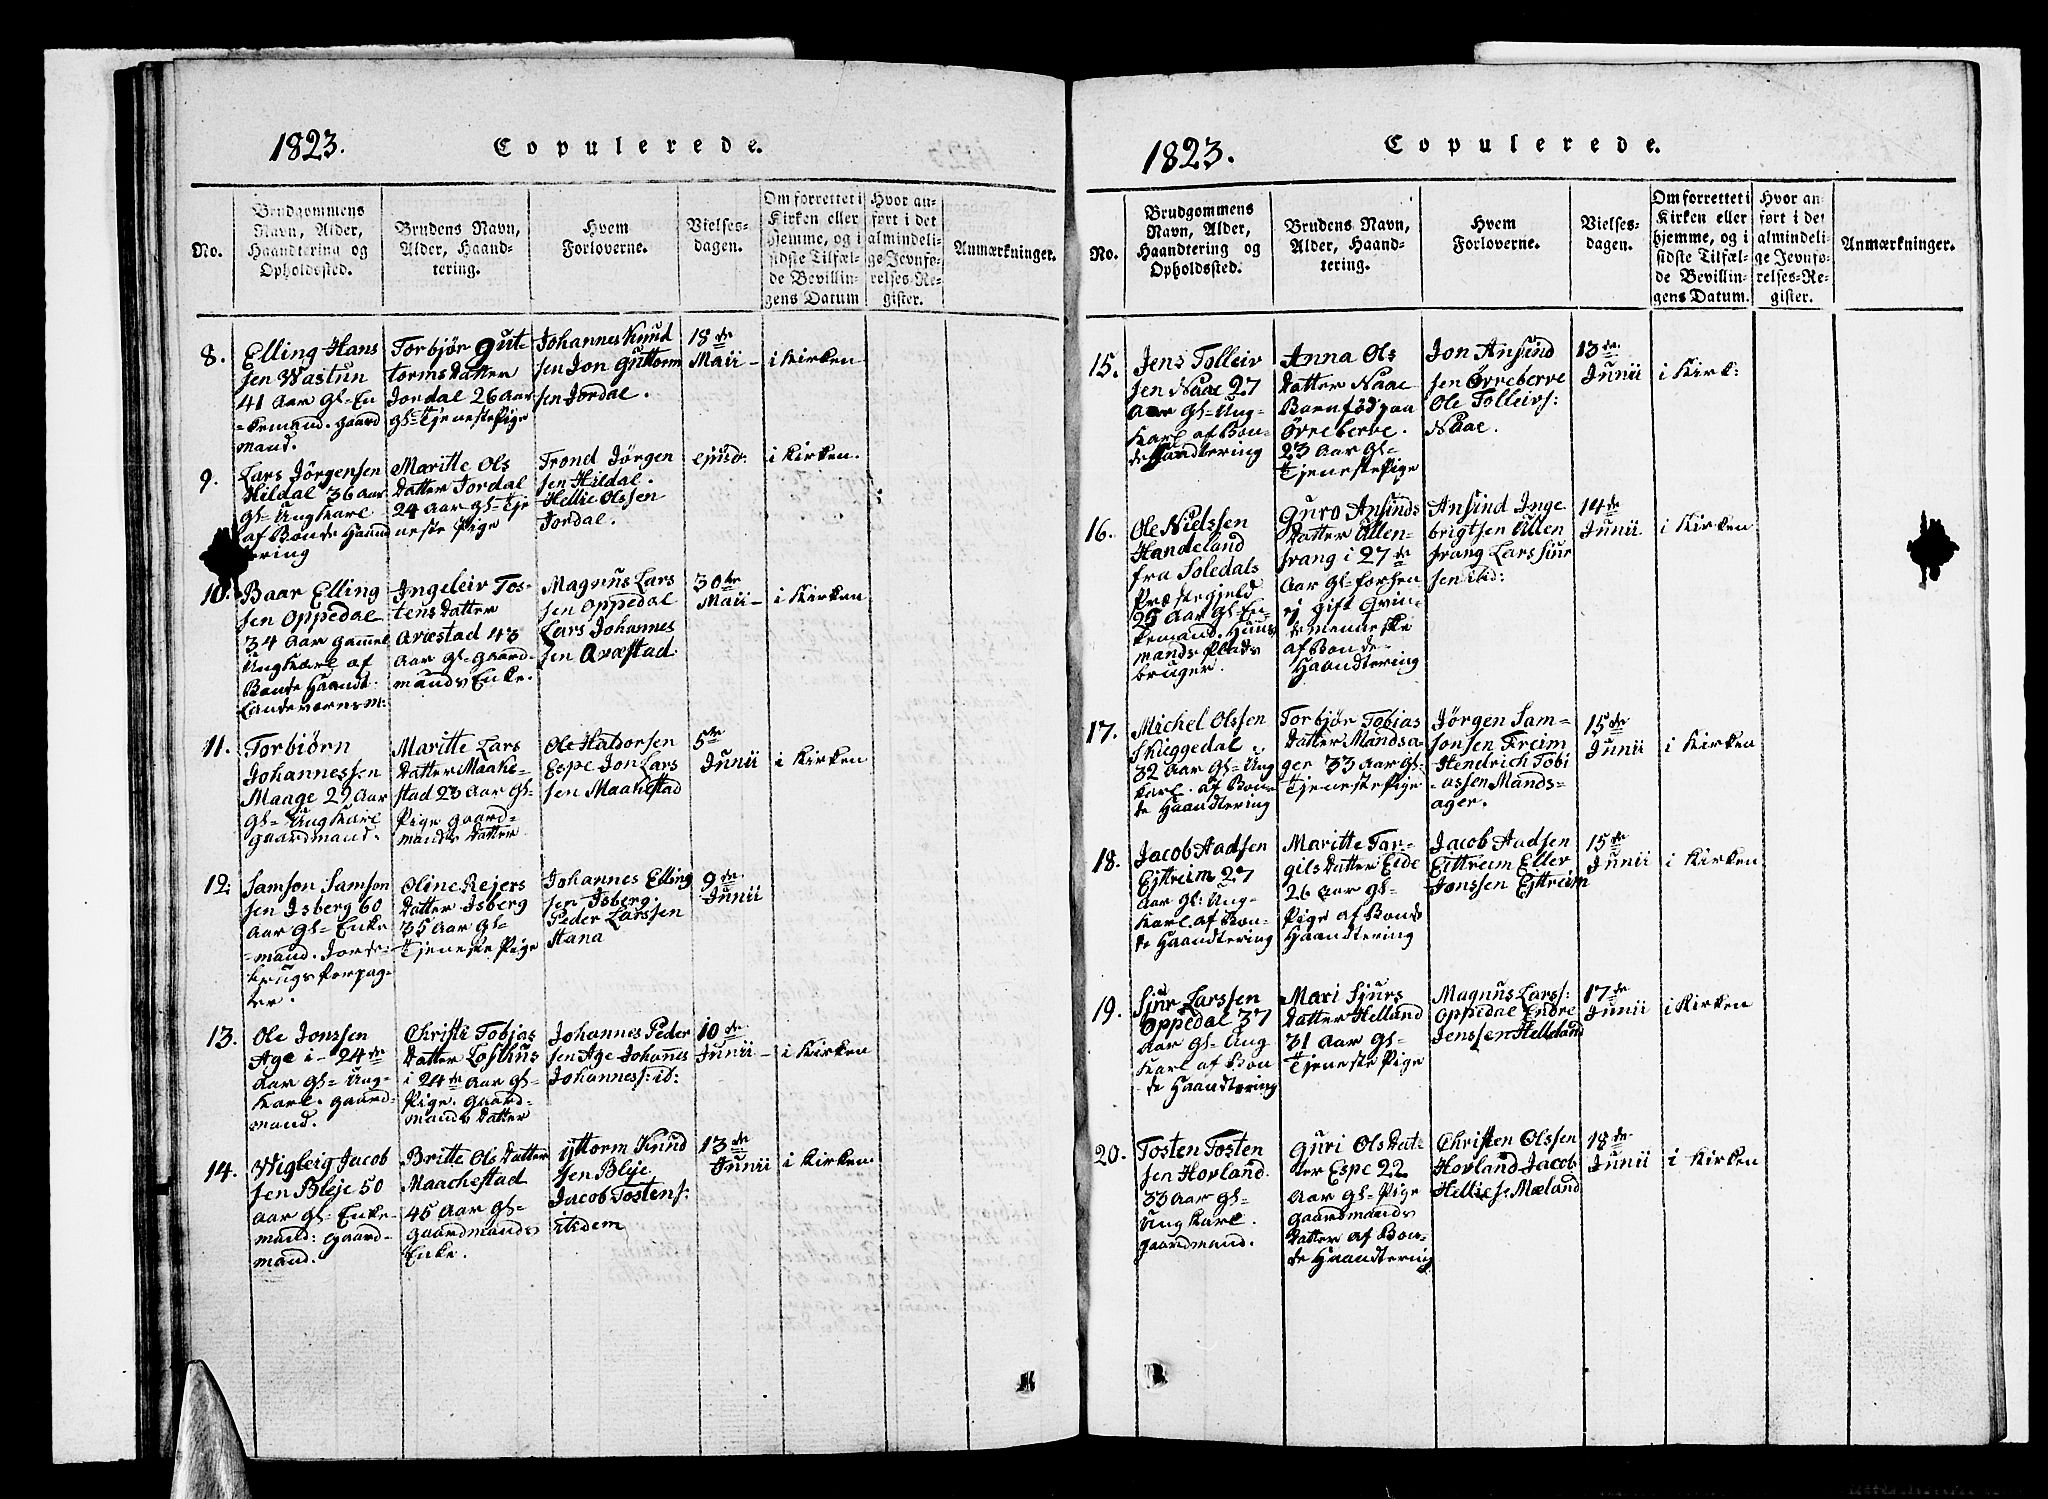 1823.
Copulerede.
No.
Brudgommens
Navn, Alder,
Haandtering og
Opholdssted.
Brudens Navn,
Alder, Haand-
tering.
Hvem
Forloverne.
Vielses-
dagen.
Om forrettet i
Kirken eller
hjemme, og i
sidste Tilfæl-
de Bevillin-
gens Datum
Hvor an-
ført i det
almindeli-
ge Jevnfø-
relses-Re-
gister.
Anmærkninger.
8.
Elling Hans
sen Wastun
41 Aar Gl- En
kemand. Gaard
mand.
Torbjør Gut-
torms Datter
Jordal 26 Aar
Gl- Tjeneste Pige
Johannes Knud
sen Jon Guttorm
sen Jordal.
18de
Maii-
i Kirken
9.
Lars Jörgensen
Hildal 36 Aar
Gl- Ung Karl
af Bonde Haand
tering
Maritte Ols
Datter Jordal
24 Aar Gl- Tje
neste Pige
Trond Jörgen
sen Hildal.
Hellie Olssen
Jordal.
ejusd:
i Kirken.
10.
Baar Elling
sen Oppedal
34 Aar gamel
Ung Karl af
Bonde Haandt.
Landeværnsm:
Ingeleiv Tos-
tens Datter
Aræstad 43
Aar Gl- Gaard-
mands Enke.
Magnus Lars
sen Oppedal
Lars Johannes
sen Aræstad
30te
Maii-
i Kirken
11.
Torbiörn
Johannessen
Maage 29 Aar
Gl- Ung Karl
Gaardmand.
Maritte Lars
Datter Maake-
stad 23 Aar Gl-
Pige Gaard-
mands Datter
Ole Haldorsen
Espe Jon Lars
sen Maakestad
5te
Junii
i Kirken
12.
Samson Samson
sen Isberg 60
Aar Gl- Enke
mand. Jord-
brugs forpag-
ter.
Oline Rejers
Datter Isberg
35 Aar Gl-
Tjeneste Pige
Johannes Elling
sen Isberg.
Peder Larssen
Hana
9de
Junii
13.
Ole Jonssen
Age i 24de
Aar Gl- Ung-
Karl. Gaard-
mand.
Christi Tobias
Datter Lofthus
i 24de Aar Gl-
Pige. Gaard-
mands Datter
Johannes Peder
sen Age Johannes
Johanness: ib:
10de
Junii-
i Kirken
14.
Wigleig Jacob
sen Bleje 50
Aar Gl- Enke-
mand: Gaard-
mand.
Britte Ols Datter
Maachestad
45 Aar Gl-
Gaardmands
Enke.
Gjttorm Knud
sen Bleje
Jacob Tostens:
ibidem
13de
Junii
i Kirken
1823.
Copulerede.
No.
Brudgommens
Navn, Alder,
Haandtering og
Opholdssted.
Brudens Navn,
Alder, Haand-
tering.
Hvem
Forloverne.
Vielses-
dagen.
Om forrettet i
Kirken eller
hjemme, og i
sidste Tilfæl-
de Bevillin-
gens Datum.
Hvor an-
ført i det
almindeli-
ge Jevnfø-
relses-Re-
gister.
Anmærkninger.
15.
Jens Tolleiv
sen Naae 27
Aar Gl- Ung-
Karl af Bon-
de Haandtering
Anna Ols
Datter Naae
Barnfød paa
Örreberve.
23 Aar Gl-
Tjeneste Pige
Jon Ansind
sen Örreberve
Ole Tolleivs:
Naae.
13de
Junii
i Kirk:
16.
Ole Nielssen
Handeland
fra Soledals
Præstegjeld
25 Aar Gl- En-
kemand. Huus
mands Plads
bruger.
Guro Ansinds
Datter Ullen-
svang i 27de
Aar Gl- forhen
ej gift Qvin-
demenneske
af Bonde-
Haandtering
Ansind Inge
brigtsen Ullen
svang Lars Siur
sen ibid:
14de
Junii
i Kirken
17.
Michel Olssen
Skiggedal
32 Aar Gl- Ung
Karl. af Bon-
de Haandtering
Torbjör Tobias
Datter Mandsa-
ger 33 Aar Gl-
Tjeneste Pige
Jörgen Sam-
sonsen Freim
Hendrich Tobi
assen Mands-
ager.
15de
Junii
i Kirken
18.
Jacob Aadsen
Ejttreim 27
Aar Gl: Ung-
Karl. af Bon-
de Haandtering
Maritte Tar-
gils Datter Eide
26 Aar Gl-
Pige af Bonde
Haandtering
Jacob Aadsen
Eittreim Eller
Jonssen Ejttreim
15de
Junii
i Kirken
19.
Siur Larssen
Oppedal 37
Aar Gl- Ung
Karl af Bon
de Haandtering
Mari Sjurs
Datter Helland
31 Aar Gl-
Tjeneste Pige
Magnus Larss:
Oppedal Endre
Jenssen Helleland
17de
Junii
i Kirken
20.
Tosten Tosten
sen Hovland
33 Aar Gl-
Ung Karl.
Gaardmand.
Guri Ols Dat-
ter Espe 22
Aar Gl- Pige
Gaardmands
Datter af Bon-
de Haandtering
Christen Olssen
Hovland Jacob
Hellies: Mæland
18de
Junii
i Kirken